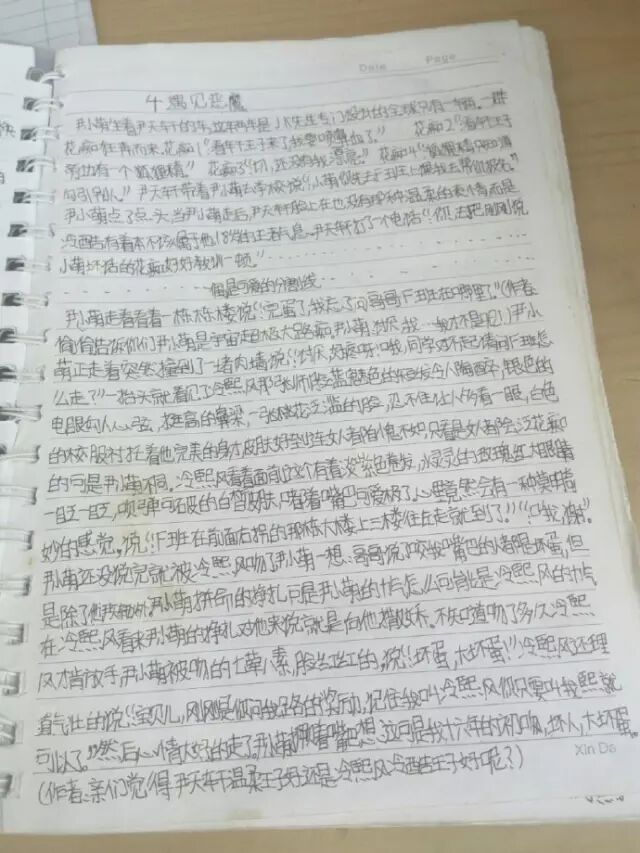 Date Page
4 遇见恶魔
尹小萌坐着尹天轩的车,这车是JK先生专门设计的全球只有一辆。一群
花痴狂奔而来,花痴1"看轩王子来了我要喷鼻血了。" 花痴2"看轩王子
旁边有一个狐狸精。" 花痴3"切,还没有我漂亮。" 花痴4"狐狸精
勾引别人。"尹天轩带着尹小萌去学校说"小萌你先去F班上课我去帮你报名"
尹小萌点了点头,当尹小萌走后,尹天轩脸上在也没有那种温柔的表情而是
冷酷有着本不该属于他18岁的王者气息。尹天轩打了一个电话"你去把刚刚说
小萌坏话的花痴好好教训一顿。"
俺是可爱的分割线
尹小萌走着看着一栋栋楼说"完蛋了我忘了问哥哥F班在哪里了"(作者
偷偷告诉你们尹小萌是宇宙超极大路痴。尹小萌 我 我才不是呢!)尹小
萌正走着突然撞到了一堵肉墙说" 好疼呀!哦,同学对不起请问F班怎
么走?"一抬头就看见了冷熙风那张 蓝魅色的 发令人陶醉,银色的
电眼勾人心弦,挺高的鼻梁,一张桃花泛滥的脸,忍不住让人多看一眼,白色
的校服衬托着他完美的身才皮肤好到让女人都自愧不如,只看是女人都会泛花痴
的可是尹小萌不同。冷熙风看着面前这个有着淡紫色卷发,水灵灵的玫瑰红大眼睛
一眨一眨,吹弹可破的白皙皮肤,嘟着嘴巴可爱极了,心里竟然会有一种莫明奇
妙的感觉。说"F班在前面右拐的那栋大楼上三楼往左走就到了""哦,谢"
尹小萌还没说完就被冷熙风吻了尹小萌一想,哥哥说咬我嘴巴的都是坏蛋,但
是除了他 尹小萌拼命的挣扎可是尹小萌的力气怎么可能是冷熙风的力气
在冷熙风看来尹小萌的挣扎对他来说就是向他撒娇。不知道吻了多久冷熙
风才肯放手,尹小萌被吻的七荤八素,脸红红的,说"坏蛋,大坏蛋!"冷熙风还理
直气壮的说"宝贝儿,刚刚是你问我路的奖励,记住我叫冷熙风你只要叫我熙就
可以了。"然后心情大好的走了。尹小萌捂着嘴巴想,这可是我十六年的初吻,坏人,大坏蛋。
(作者:亲们觉得尹天轩温柔王子好还是冷熙风冷酷王子好呢?)
Xin Da